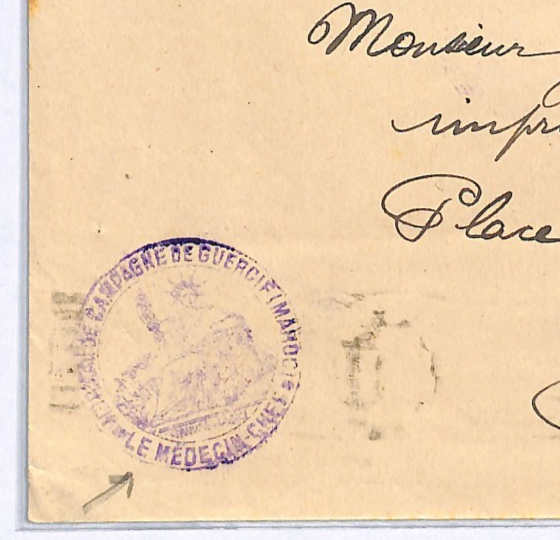 Monsieur
impr
Place
DE CAMPAGNE DE GUERCIF (MAROC)
LE MÉDECIN-CHEF